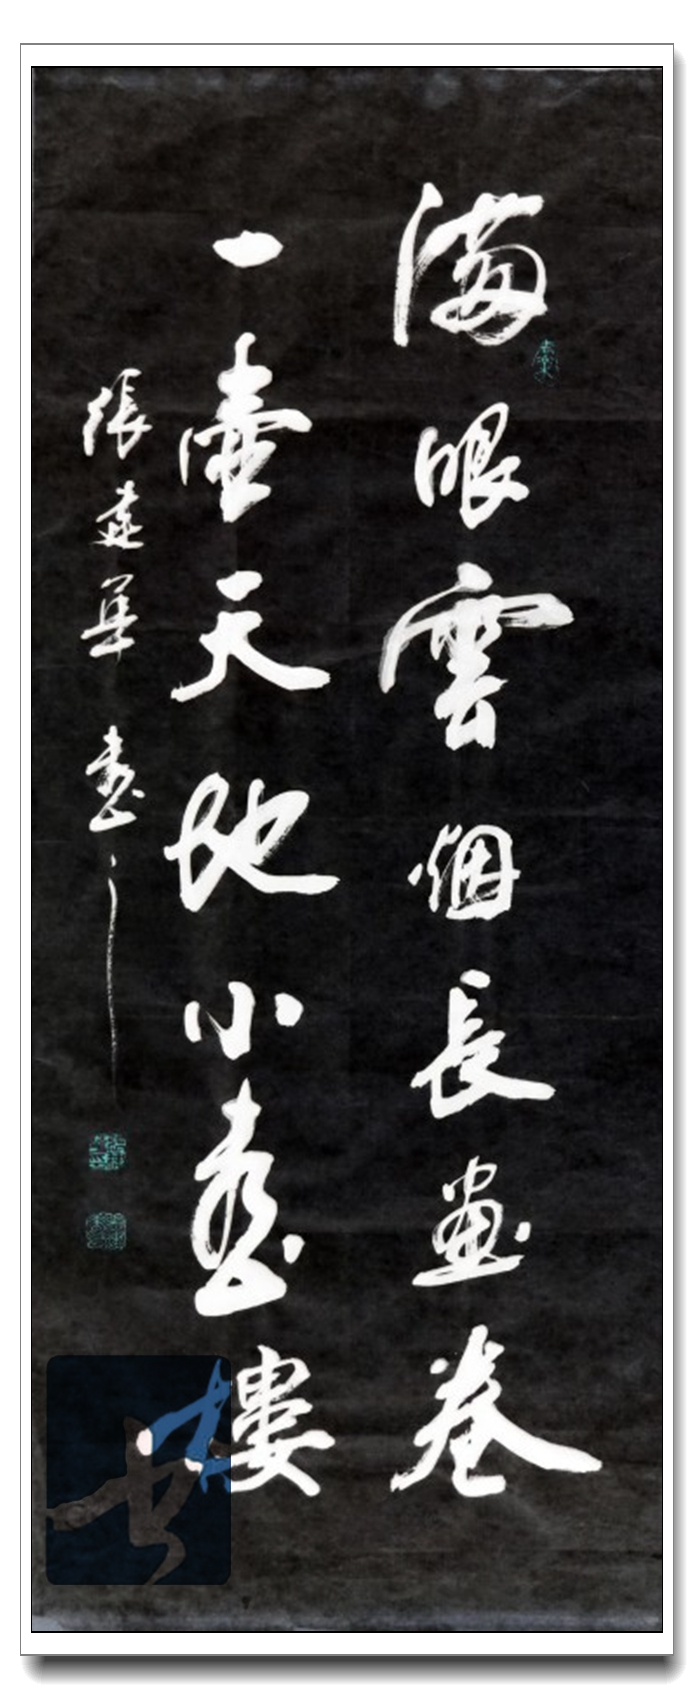 滿眼雲烟長畫卷
一壺天地小書樓
張建華書